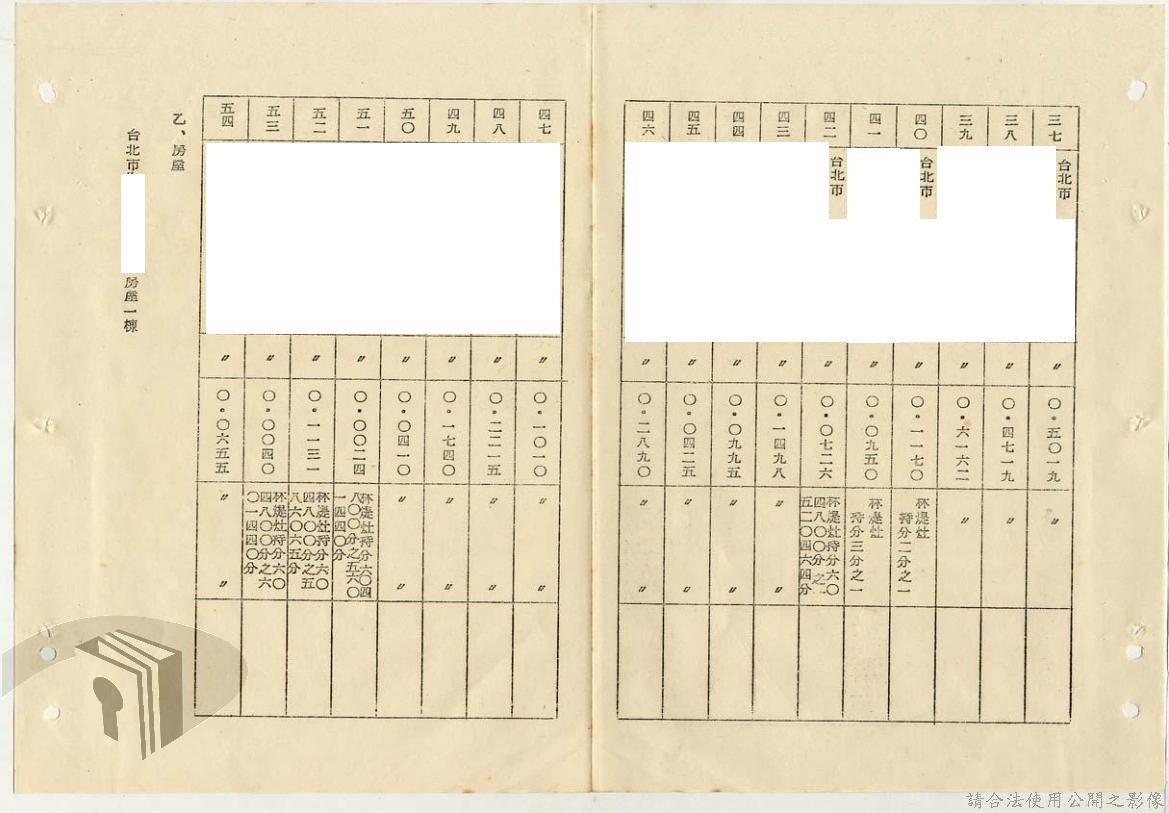 三七 台北市 〃 〇・五〇一九 〃
三八 〃 〇・四七一九
三九 〃 〇・六一六二 〃
四〇 台北市 〃 〇・一一七〇 林湜灶持分二分之一
四一 〃 〇・〇九五〇 林湜灶持分三分之一
四二 台北市 〃 〇・〇七二六 林湜灶持分六〇四八〇〇分之一五二〇四六四分
四三 〃 〇・一四九八 〃 〃
四四 〃 〇・〇九九五 〃 〃
四五 〃 〇・〇四二五 〃 〃
四六 〃 〇・二八九〇 〃 〃
四七 〃 〇・一〇一〇 〃 〃
四八 〃 〇・二二一五 〃 〃
四九 〃 〇・一七四〇 〃 〃
五〇 〃 〇・〇四一〇 〃 〃
五一 〃 〇・〇〇二四 林湜灶持分六〇四八〇〇分之五六〇一四四〇分
五二 〃 〇・一一三一 林湜灶持分六〇四八〇〇分之五八六〇六五分
五三 〃 〇・〇〇四〇 林湜灶持分六〇四八〇〇分之六〇一四四〇分
五四 〃 〇・〇六五五 〃 〃
乙、房屋
台北市
房屋一棟
請合法使用公開之影像